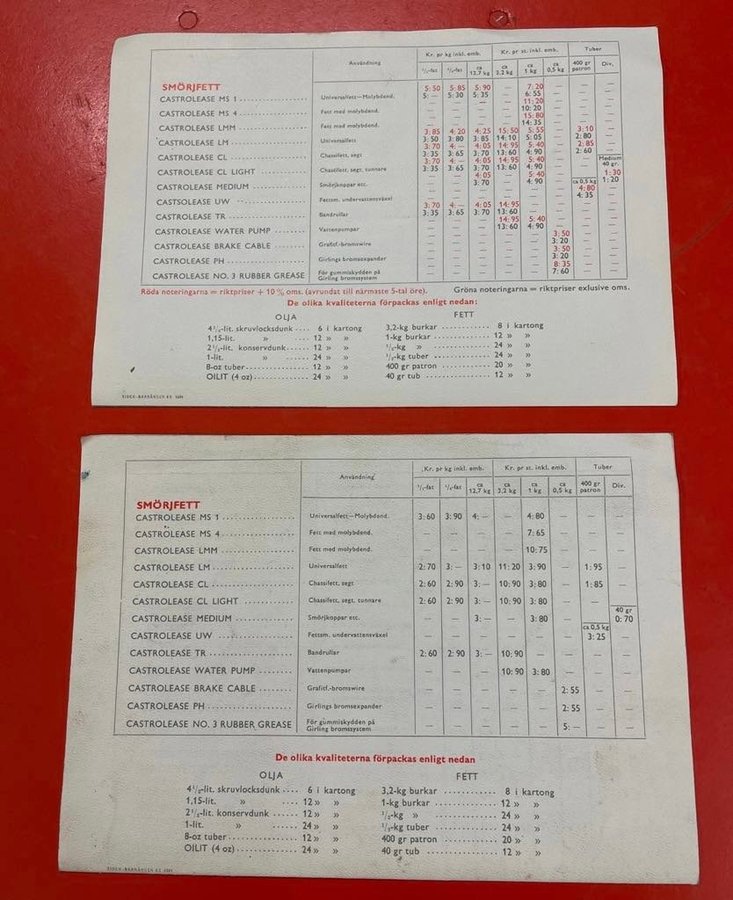 Kr. pr kg inkl. emb. Kr. pr st. inkl. emb. Tuber
Användning ca 12,7 kg ca 3,2 kg ca 1 kg ca 0,5 kg 400 gr patron Div.
SMÖRJFETT 5:50 5:85 5:90 — 7:20 — — —
CASTROLEASE MS 1 Universalfett—Molybdend. 5:— 5:30 5:35 — 6:55 — — —
11:20
CASTROLEASE MS 4 Fett med molybdend. — — — — 10:20 — — —
15:80
CASTROLEASE LMM Fett med molybdend. — — — — 14:35 — — —
3:85 4:20 4:25 15:50 5:55 — 3:10 —
CASTROLEASE LM Universalfett 3:50 3:80 3:85 14:10 5:05 — 2:80 —
3:70 4:— 4:05 14:95 5:40 — 2:85 —
CASTROLEASE CL Chassifett, segt 3:35 3:65 3:70 13:60 4:90 — 2:60 —
3:70 4:— 4:05 14:95 5:40 — — Medium 40 gr.
CASTROLEASE CL LIGHT Chassifett, segt, tunnare 3:35 3:65 3:70 13:60 4:90 — —
4:05 — 5:40 — 1:30
CASTROLEASE MEDIUM Smörjkoppar etc. — — 3:70 — 4:90 — ca 0,5 kg 1:20
4:80
CASTSOLEASE UW Fettsm. undervattensväxel — — — — — — 4:35 —
3:70 4:— 4:05 14:95 — — — —
CASTROLEASE TR Bandrullar 3:35 3:65 3:70 13:60 — — — —
14:95 5:40
CASTROLEASE WATER PUMP Vattenpumpar — — — 13:60 4:90 — — —
3:50
CASTROLEASE BRAKE CABLE Grafitf.-bromswire — — — — — 3:20 — —
3:50
CASTROLEASE PH Girlings bromsexpander — — — — — 3:20 — —
8:35
CASTROLEASE NO. 3 RUBBER GREASE För gummiskydden på Girling bromssystem — — — — — 7:60 — —
Röda noteringarna = riktpriser + 10 % oms. (avrundat till närmaste 5-tal öre). Gröna noteringarna = riktpriser exlusive oms.
De olika kvaliteterna förpackas enligt nedan:
OLJA FETT
4½-lit. skruvlocksdunk 6 i kartong 3,2-kg burkar 8 i kartong
1,15-lit. » 12 » » 1-kg burkar 12 » »
2½-lit. konservdunk 12 » » ½-kg » 24 » »
1-lit. » 24 » » ½-kg tuber 24 » »
8-oz tuber 12 » » 400 gr patron 20 » »
OILIT (4 oz) 24 » » 40 gr tub 12 » »
Kr. pr kg inkl. emb. Kr. pr st. inkl. emb. Tuber
Användning ca 12,7 kg ca 3,2 kg ca 1 kg ca 0,5 kg 400 gr patron Div.
SMÖRJFETT
CASTROLEASE MS 1 Universalfett—Molybdend. 3:60 3:90 4:— — 4:80 — — —
CASTROLEASE MS 4 Fett med molybdend. — — — — 7:65 — — —
CASTROLEASE LMM Fett med molybdend. — — — — 10:75 — — —
CASTROLEASE LM Universalfett 2:70 3:— 3:10 11:20 3:90 — 1:95 —
CASTROLEASE CL Chassifett, segt 2:60 2:90 3:— 10:90 3:80 — 1:85 —
CASTROLEASE CL LIGHT Chassifett, segt, tunnare 2:60 2:90 3:— 10:90 3:80 — — 40 gr
CASTROLEASE MEDIUM Smörjkoppar etc. — — 3:— — 3:80 — ca 0,5 kg 0:70
CASTROLEASE UW Fettsm. undervattensväxel — — — — — — 3:25 —
CASTROLEASE TR Bandrullar 2:60 2:90 3:— 10:90 — — — —
CASTROLEASE WATER PUMP Vattenpumpar — — — 10:90 3:80 — — —
CASTROLEASE BRAKE CABLE Grafitf.-bromswire — — — — — 2:55 — —
CASTROLEASE PH Girlings bromsexpander — — — — — 2:55 — —
CASTROLEASE NO. 3 RUBBER GREASE För gummiskydden på Girling bromssystem — — — — — 5:— — —
De olika kvaliteterna förpackas enligt nedan
OLJA FETT
4½-lit. skruvlocksdunk 6 i kartong 3,2-kg burkar 8 i kartong
1,15-lit. » 12 » » 1-kg burkar 12 » »
2½-lit. konservdunk 12 » » ½-kg » 24 » »
1-lit. » 24 » » ½-kg tuber 24 » »
8-oz tuber 12 » » 400 gr patron 20 » »
OILIT (4 oz) 24 » » 40 gr tub 12 » »